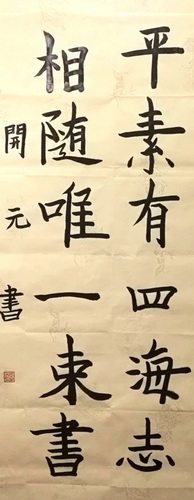 平素有四海志
相随唯一束书
開元書